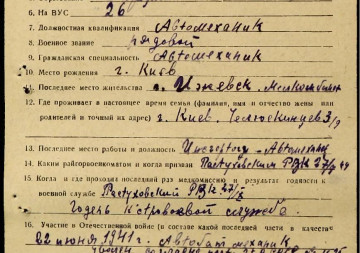 6. На ВУС 26
7. Должностная квалификация Автомеханик
8. Военное звание рядовой
9. Гражданская специальность Автомеханик
10 Место рождения г. Киев
11. Последнее место жительства г. Ижевск,
12. Где проживает в настоящее время семья (фамилия, имя и отчество жены или
родителей и точный их адрес) г. Киев. Челюскинцев 3/9
13. Последнее место работы и должность Автомеханик
14. Каким райсорвоенкоматом и когда призван Пастуховским РВК
15. Когда и где проходил последний раз медкомиссию и результат годности к
военной службе Пастуховский РВК 27/I
Годен к строевой службе.
16. Участие в Отечественной войне (в составе какой последней части и в качестве
22 июня 1941 г. Автобат механик